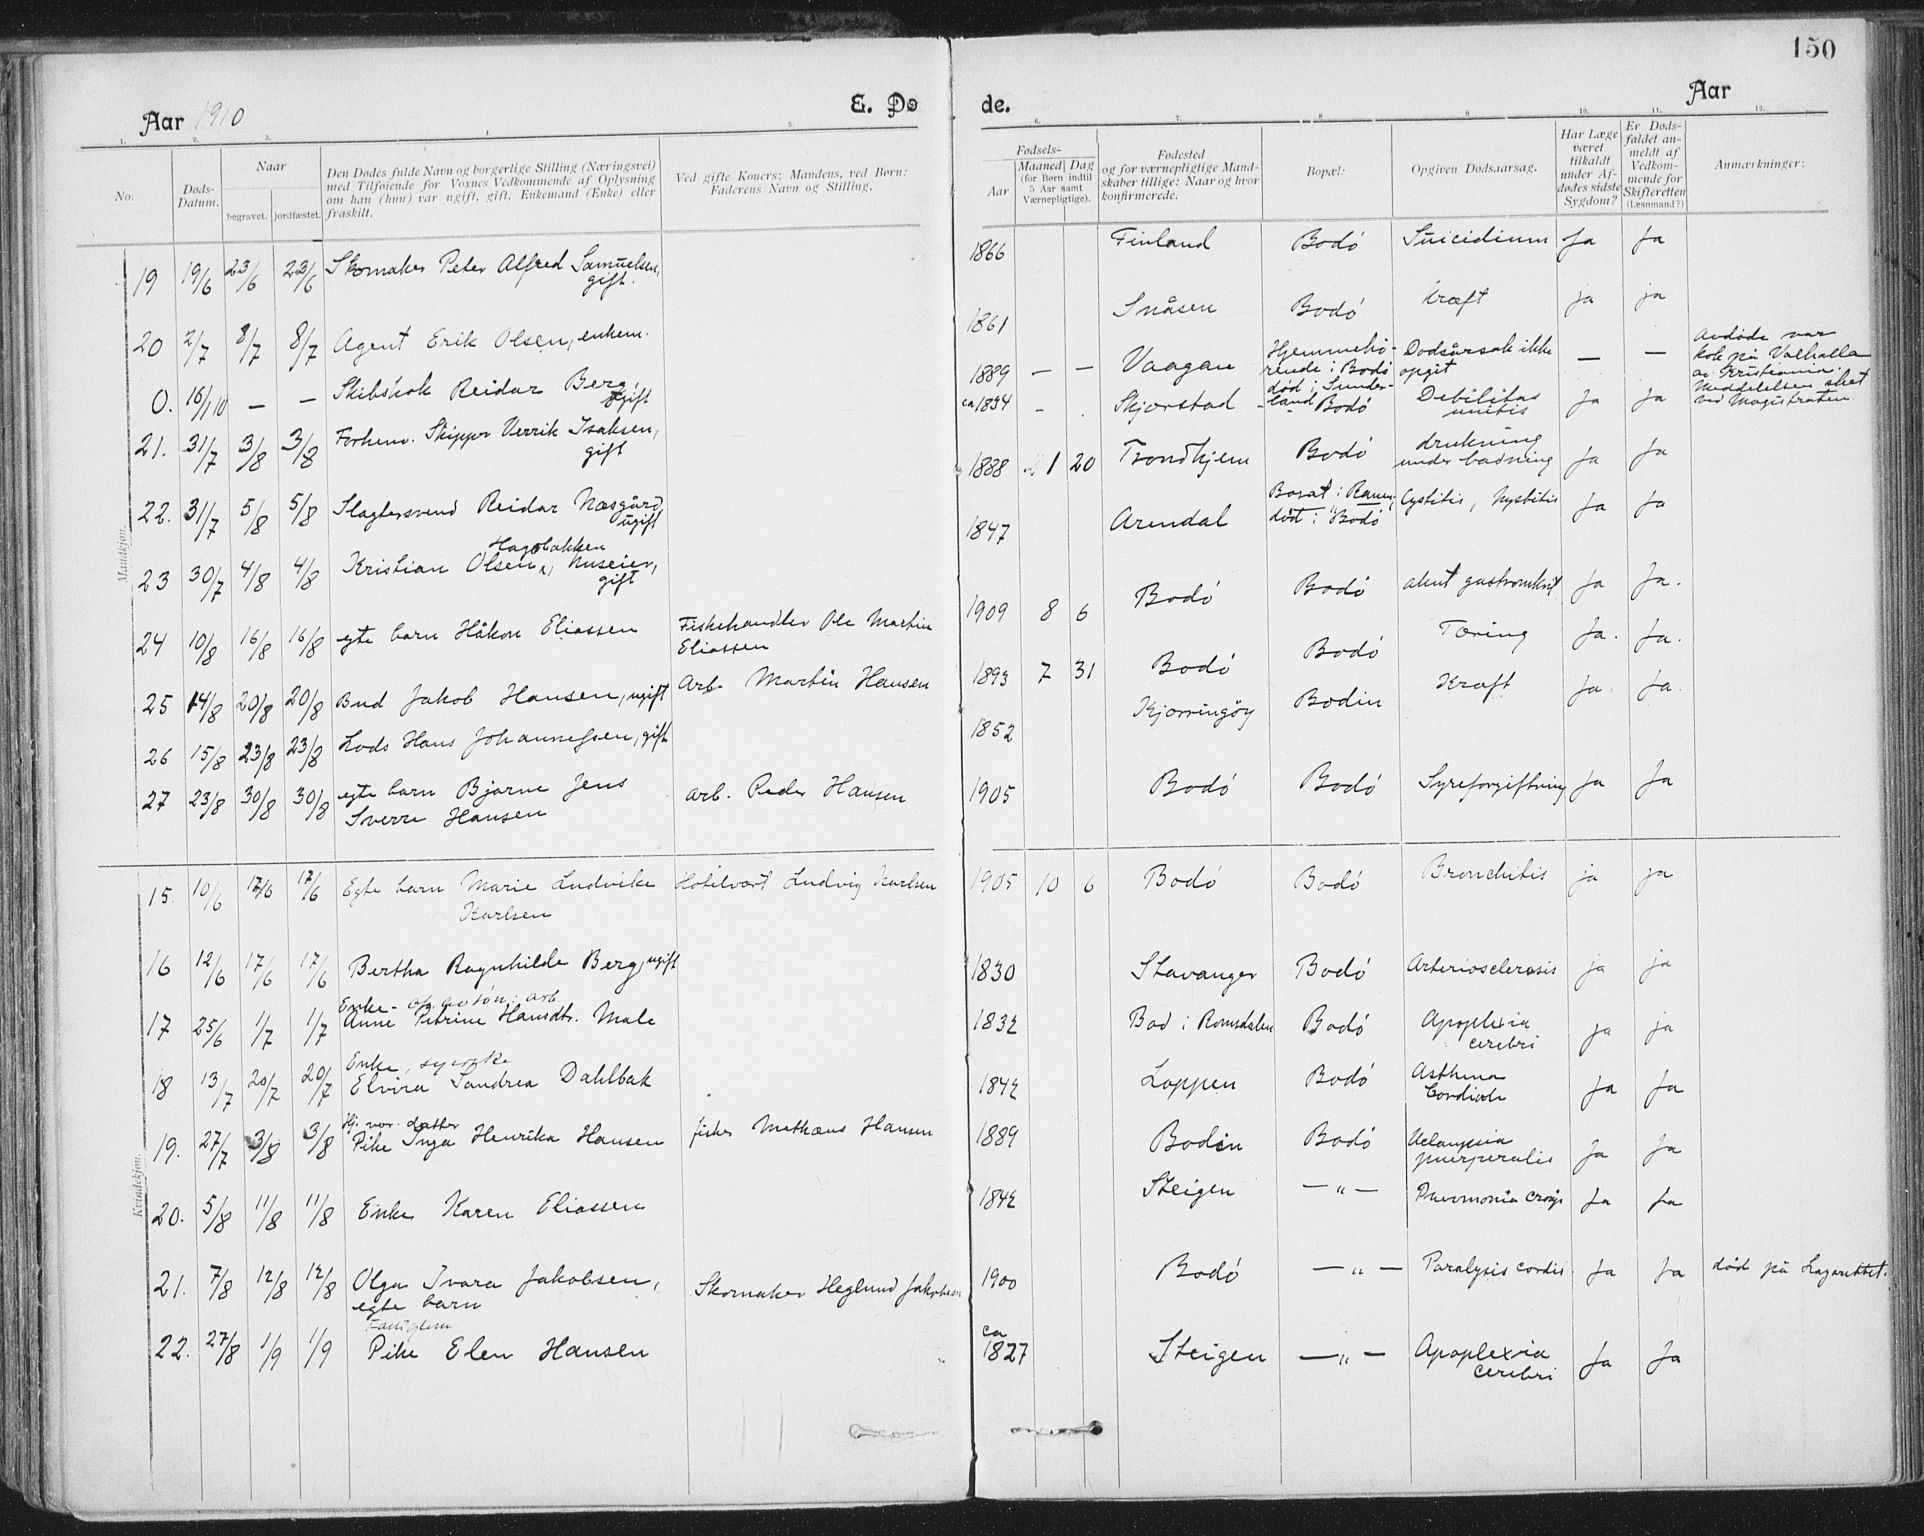 150
Aar 1910
E. Dø
de.
Aar
1. 2. 3. 4. 5. 6. 7. 8. 9. 10. 11. 12.
No.
Døds-Datum.
Naar
begravet. jordfæstet.
Den Dødes fulde Navn og borgerlige Stilling (Næringsvei)
med Tilføiende for Voxnes Vedkommende af Oplysning
om han (hun) var ugift, gift, Enkemand (Enke) eller
fraskilt.
Ved gifte Koners: Mandens, ved Børn:
Faderens Navn og Stilling.
Fødsels-
Aar
Maaned Dag
(for Børn indtil
5 Aar samt
Værnepligtige).
Fødested
og for værnepligtige Mand-
skaber tillige: Naar og hvor
konfirmerede.
Bopæl:
Opgiven Dødsaarsag.
Har Læge
været
tilkaldt
under Af-
dødes sidste
Sygdom?
Er Døds-
faldet an-
meldt af
Vedkom-
mende for
Skifteretten
(Lensmand?)
Anmærkninger:
Mandkjøn.
19 19/6 23/6 23/6 Skomaker Peter Alfred Samuelsen, 1866 Finland Bodö Suicidium Ja Ja
gift.
20 2/7 8/7 8/7 Agent Erik Olsen, enkem. 1861 Snåsen Bodö Kræft ja ja
0. 16/1 10 — — Skibskok Reidar Berg, 1889 — — Vaagan Hjemmehö- Dödsårsak ikke — — Avdöde var
ugift rende i Bodö opgit kok på Valhalla
död i Sunder- av Kristiania.
land Meddelelsen sket
ved Magistraten
21. 31/7 3/8 3/8 Forhenv. Skipper Verrik Isaksen, ca 1834 - Skjerstad Bodö Debilitas Ja Ja
gift
22. 31/7 5/8 5/8 Slagtersvend Reidar Næsgård, 1888 1 20 Trondhjem Bodö drukning Ja Ja
ugift under badning
23 30/7 4/8 4/8 Kristian Olsen Hagebakken, huseier, 1847 Arendal Bosat i Ranen, Cystitis, Ja Ja
gift död i Bodö
24 10/8 16/8 16/8 egte barn Håkon Eliassen Fiskehandler Ole Martin 1909 8 6 Bodö Bodö akut Ja Ja.
Eliassen
25 14/8 20/8 20/8 Bud Jakob Hansen, ugift Arb. Martin Hansen 1893 7 31 Bodö Bodö Tæring Ja. Ja.
26 15/8 23/8 23/8 Lods Hans Johannessen, gift 1852 Kjerringöy Bodin Kræft Ja. Ja.
27 23/8 30/8 30/8 egte barn Bjarne Jens arb. Peder Hansen 1905 Bodö Bodö Syreforgiftning Ja Ja
Sverre Hansen
Kvindekjøn.
15. 10/6 17/6 17/6 Egte barn Marie Ludvike Hotelvært Ludvig Karlsen 1905 10 6 Bodö Bodö Bronchitis ja ja
Karlsen
16 12/6 17/6 17/6 Bertha Ragnhilde Berg, ugift 1830 Stavanger Bodö Arteriosclerosis ja ja
Enke - arb.
17 25/6 1/7 1/7 Anne Petrine Hansdtr. Male 1832 Bod i Romsdalen Bodö Apoplexia ja ja
cerebri
Enke,
18 13/7 20/7 20/7 Elvira Sandrea Dahlbak 1842 Loppen Bodö Asthma Ja Ja
Cordiale
Hj. vær. datter
19. 27/7 3/8 3/8 Pike Inga Henrika Hansen fisker Mathæus Hansen 1889 Bodin Bodö Eclampsia Ja Ja
puerperalis
20. 5/8 11/8 11/8 Enke Karen Eliassen 1842 Steigen — " — Pneumonia croup Ja Ja
21. 7/8 12/8 12/8 Olga Ivara Jakobsen, Skomaker Heglund Jakobsen 1900 Bodö — " — Paralysis cordis. Ja Ja död på Lazarettet.
egte barn
Fattiglem
22. 27/8 1/9 1/9 Pike Elen Hansen ca 1827 Steigen — " — Apoplexia Ja Ja
cerebri